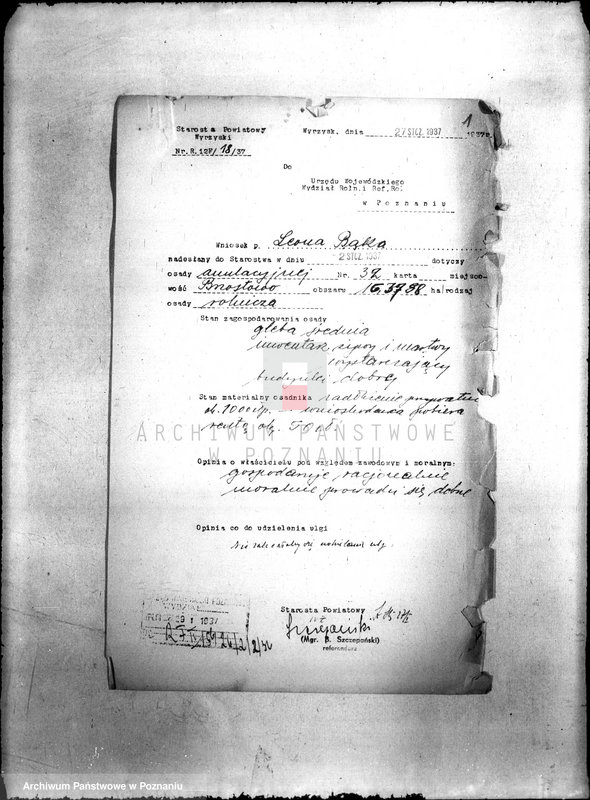 1
Starosta Powiatowy
Wyrzyski
Nr.R.12F/18/37
Wyrzysk, dnia 27 STCZ. 1937 1937r.
Do
Urzędu Wojewódzkiego
Wydział Roln.i Ref.Rol.
w Poznaniu
Wniosek p. Leona Bąka
nadesłany do Starostwa w dniu 2 STCZ. 1937 dotyczy
osady anulacyjnej Nr. 32 karta miejsco-
wość Brostowo obszaru 16,37,98 ha rodzaj
osady rolnicza
Stan zagospodarowania osady
gleba średnia
inwentarz żywy i martwy
wystarczający
budynki dobre
Stan materialny osadnika zadłużenie prywatne
1000 zł. wnioskodawca pobiera
rentę
Opinia o właścicielu pod względem zawodowym i moralnym:
gospodaruje racjonalnie
moralnie prowadzi się dobrze
Opinia co do udzielenia ulgi
Starosta Powiatowy
(Mgr. B. Szczepański)
referendarz
1937
ARCHIWUM PAŃSTWOWE
W POZNANIU
Archiwum Państwowe w Poznaniu